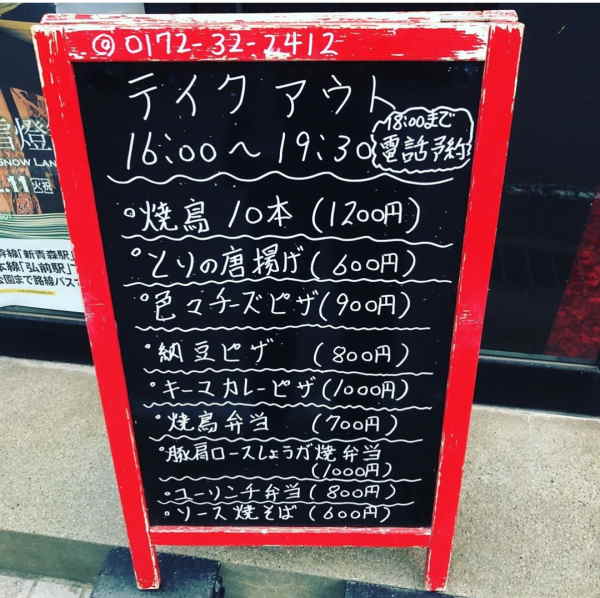 ◎ 0172-32-2412
テイクアウト
16:00～19:30
18:00まで
電話予約
・焼鳥 10本 (1200円)
・とりの唐揚げ (600円)
・色々チーズピザ (900円)
・納豆ピザ (800円)
・キーマカレーピザ (1000円)
・焼鳥弁当 (700円)
・豚肩ロースしょうが焼弁当
(1000円)
・ユーリンチ弁当 (800円)
・ソース焼そば (600円)
雪燈
SNOW LAN
.11
火祝
幹線「新青森駅」
本線「弘前駅」
公園まで路線バス